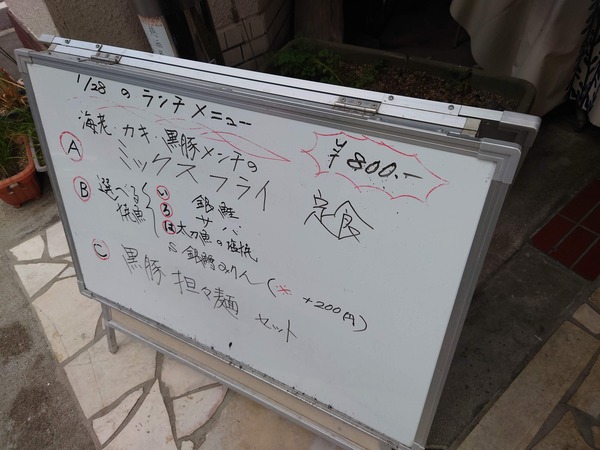 1/28 の ランチ メニュー
¥800.-
A 海老・カキ・黒豚メンチの
ミックスフライ
定食
B 選べる
焼魚
い 銀鮭
ろ サバ
は 太刀魚の塩焼
S 銀鱈みりん (※ +200円)
C 黒豚 担々麺 セット